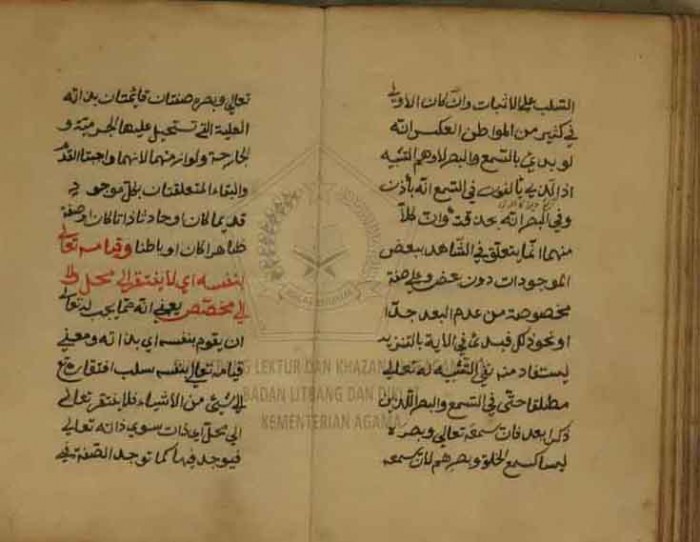 السلب على الاثبات وان كان الاولى
في كثير من المواطن العكس لانه
لو بدئ بالسمع والبصر لاوهم التشبيه
اذ الذي يؤلف في السمع انه باذن
وفي البصر انه بحدقة وان كلا
منهما انما يتعلق في الشاهد ببعض
الموجودات دون بعض وعلى صفة
مخصوصة من عدم البعد جدا
او نحو ذلك فبدئ في الاية بالتنزيه
ليستفاد منه نفي التشبيه له تعالى
مطلقا حتى في السمع والبصر اللذين
ذكرا بعد فان سمعه تعالى وبصره
ليسا كسمع الخلق وبصرهم لان سمعه
تعالى وبصره صفتان قائمتان بذاته
العلية التي تستحيل عليها الجرمية و
الجارحة ولوازمهما لانهما واجبتا القدم
والبقاء المتعلقتان بكل موجود
قديما كان او حادثا ذاتا كان او صفة
ظاهرا كان او باطنا وقيامه تعالى
بنفسه اي لا يفتقر الى محل ولا
الى مخصص يعني انه مما يجب له تعالى
ان يقوم بنفسه اي بذاته ومعنى
قيامه تعالى بنفسه سلب افتقاره
الى شيء من الاشياء فلا يفتقر تعالى
الى محل اي ذات سوى ذاته تعالى
فيوجد فيها كما توجد الصفة في
LEKTUR DAN KHAZANAH
BADAN LITBANG DAN DIKLAT
KEMENTERIAN AGAMA